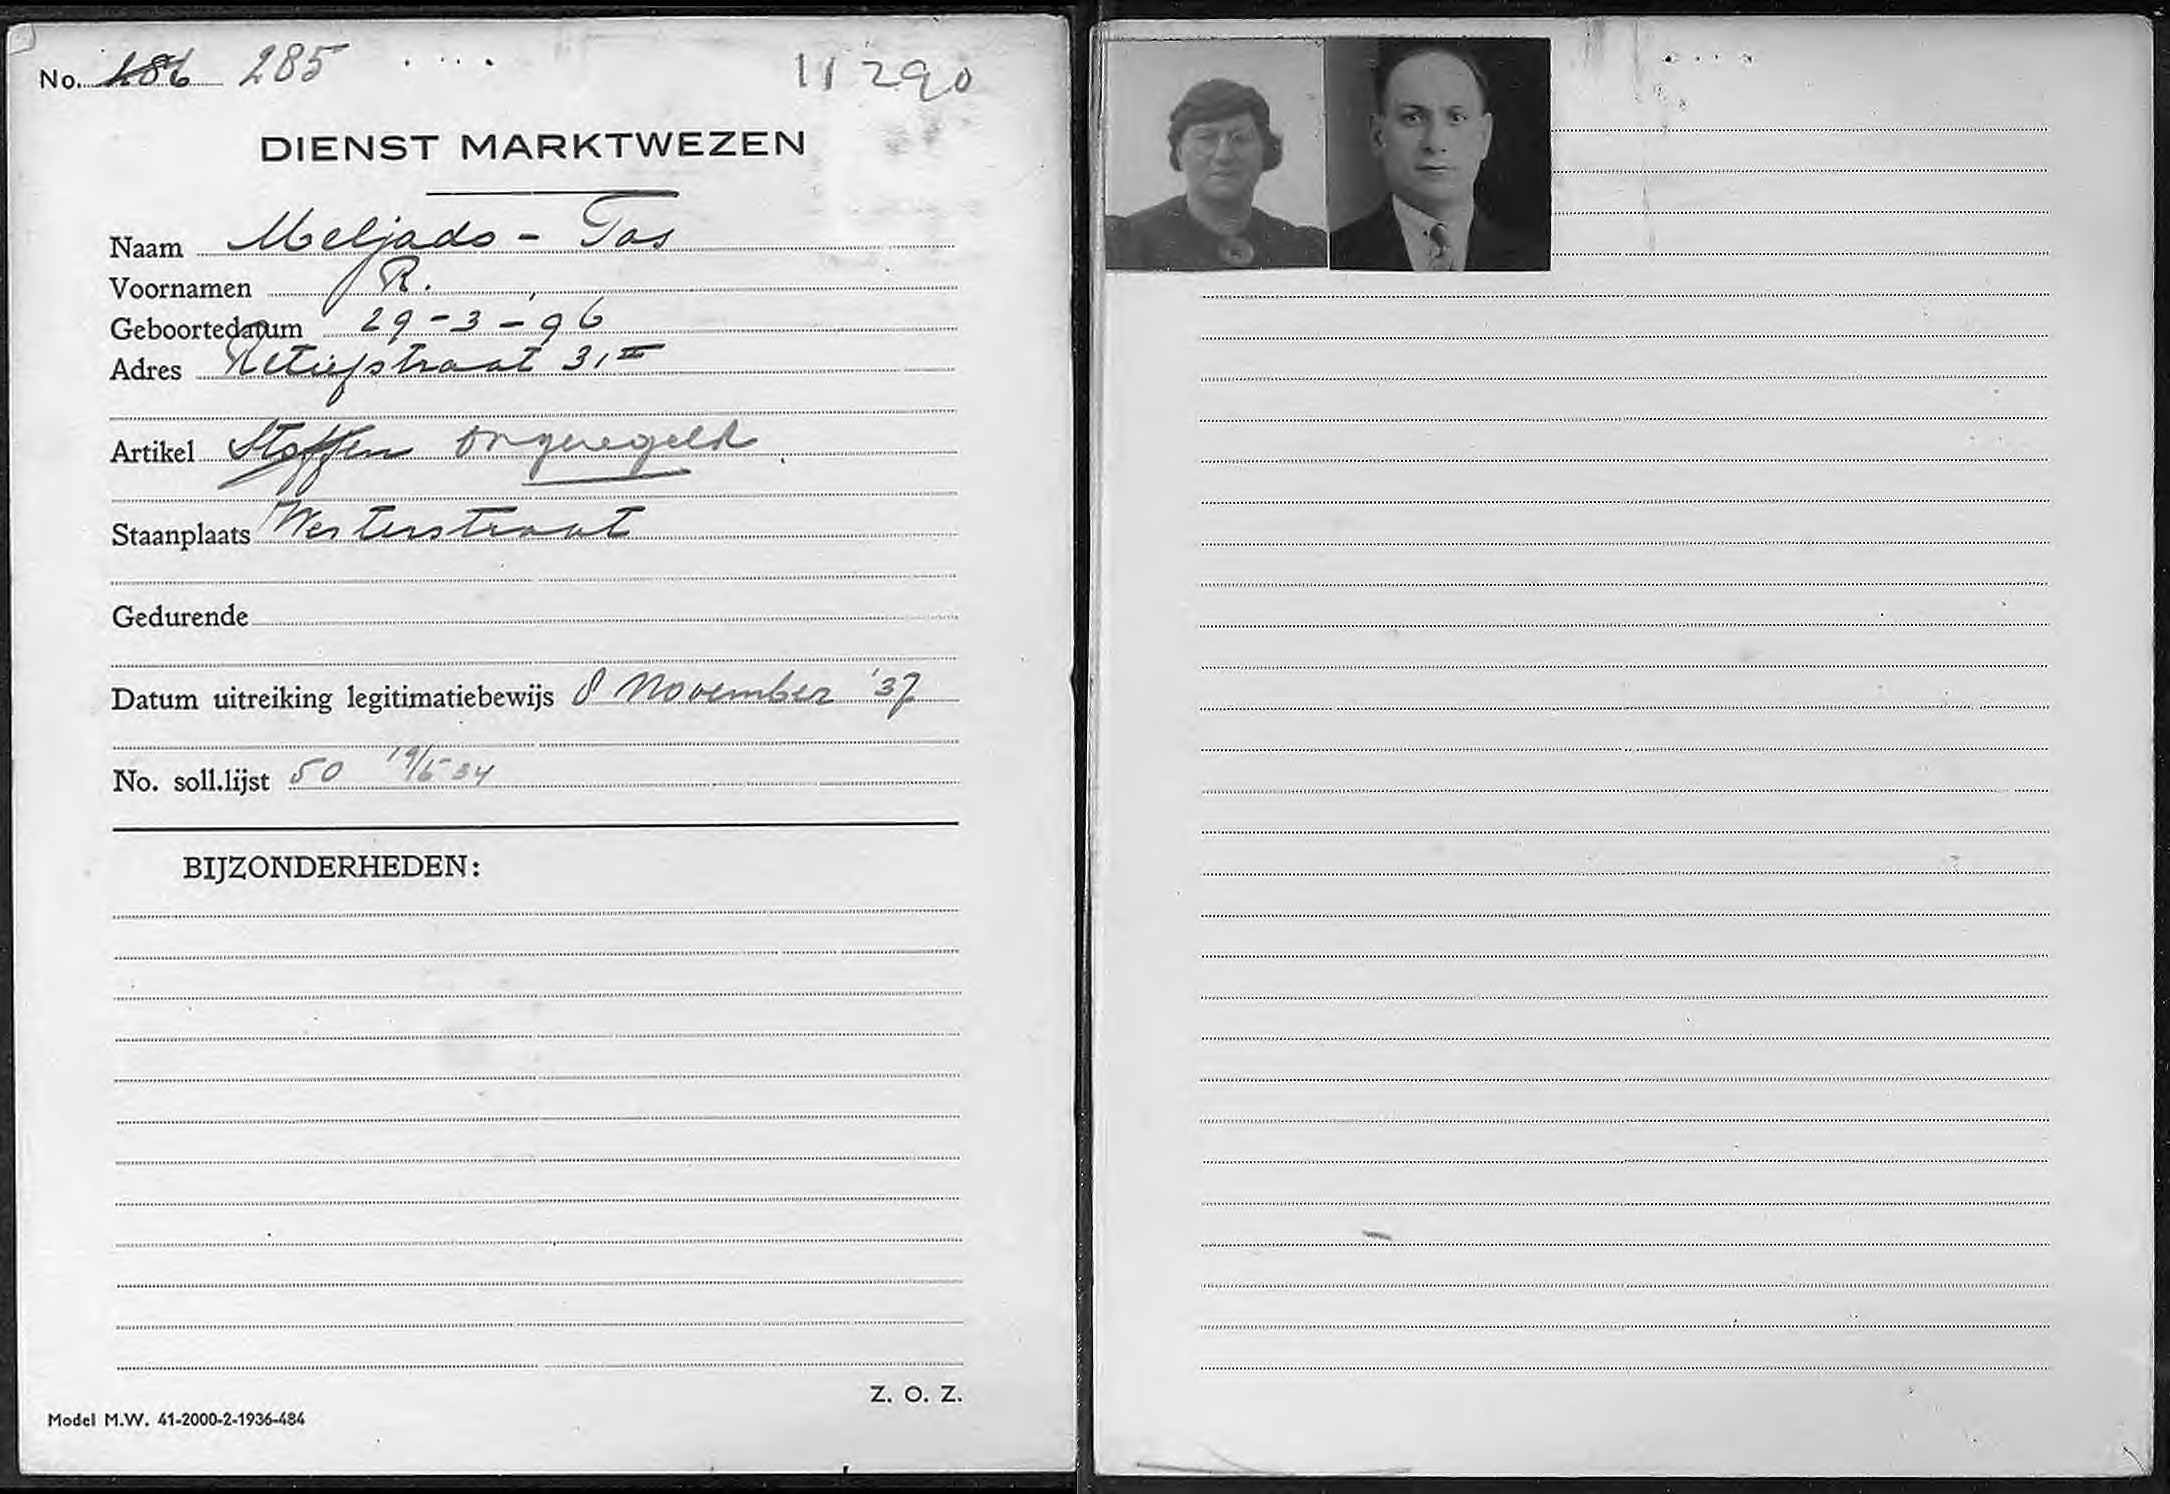 No. 186 285 11290
DIENST MARKTWEZEN
Naam Meljado - Tas
Voornamen R.
Geboortedatum 29-3-96
Adres Retiefstraat 31 III
Artikel Stoffen ongeregeld
Staanplaats Westerstraat
Gedurende
Datum uitreiking legitimatiebewijs 8 November '37
No. soll.lijst 50 19/5 34
BIJZONDERHEDEN:
Z. O. Z.
Model M.W. 41-2000-2-1936-484